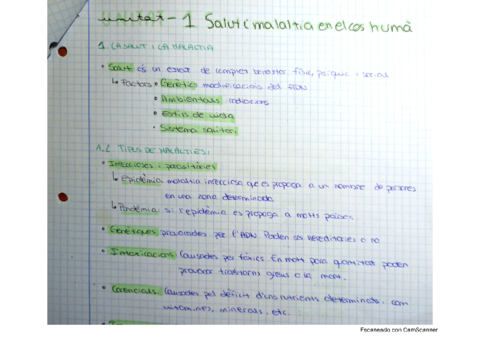 unitat-1 Salut i malaltia en el cos humà
1. LA SALUT I LA MALALTIA
• Salut és un estat de complet benestar físic, psíquic i social
↳ Factors • Genètics modificacions del ADN
• Ambientals radiacions
• Estils de vida
• Sistema sanitari
1.2 TIPUS DE MALALTIES:
• Infeccioses i parasitàries
↳ Epidèmia: malaltia infecciosa que es propaga a un nombre de persones
en una zona determinada
↳ Pandèmia: si l'epidèmia es propaga a molts països.
• Genètiques provocades per l'ADN. Poden ser hereditàries o no
• Intoxicacions Causades per tòxics. En molt poca quantitat poden
provocar trastorns greus o la mort.
• Carencials. Causades pel dèficit d'uns nutrients determinats, com
vitamines, minerals, etc.
Escaneado con CamScanner